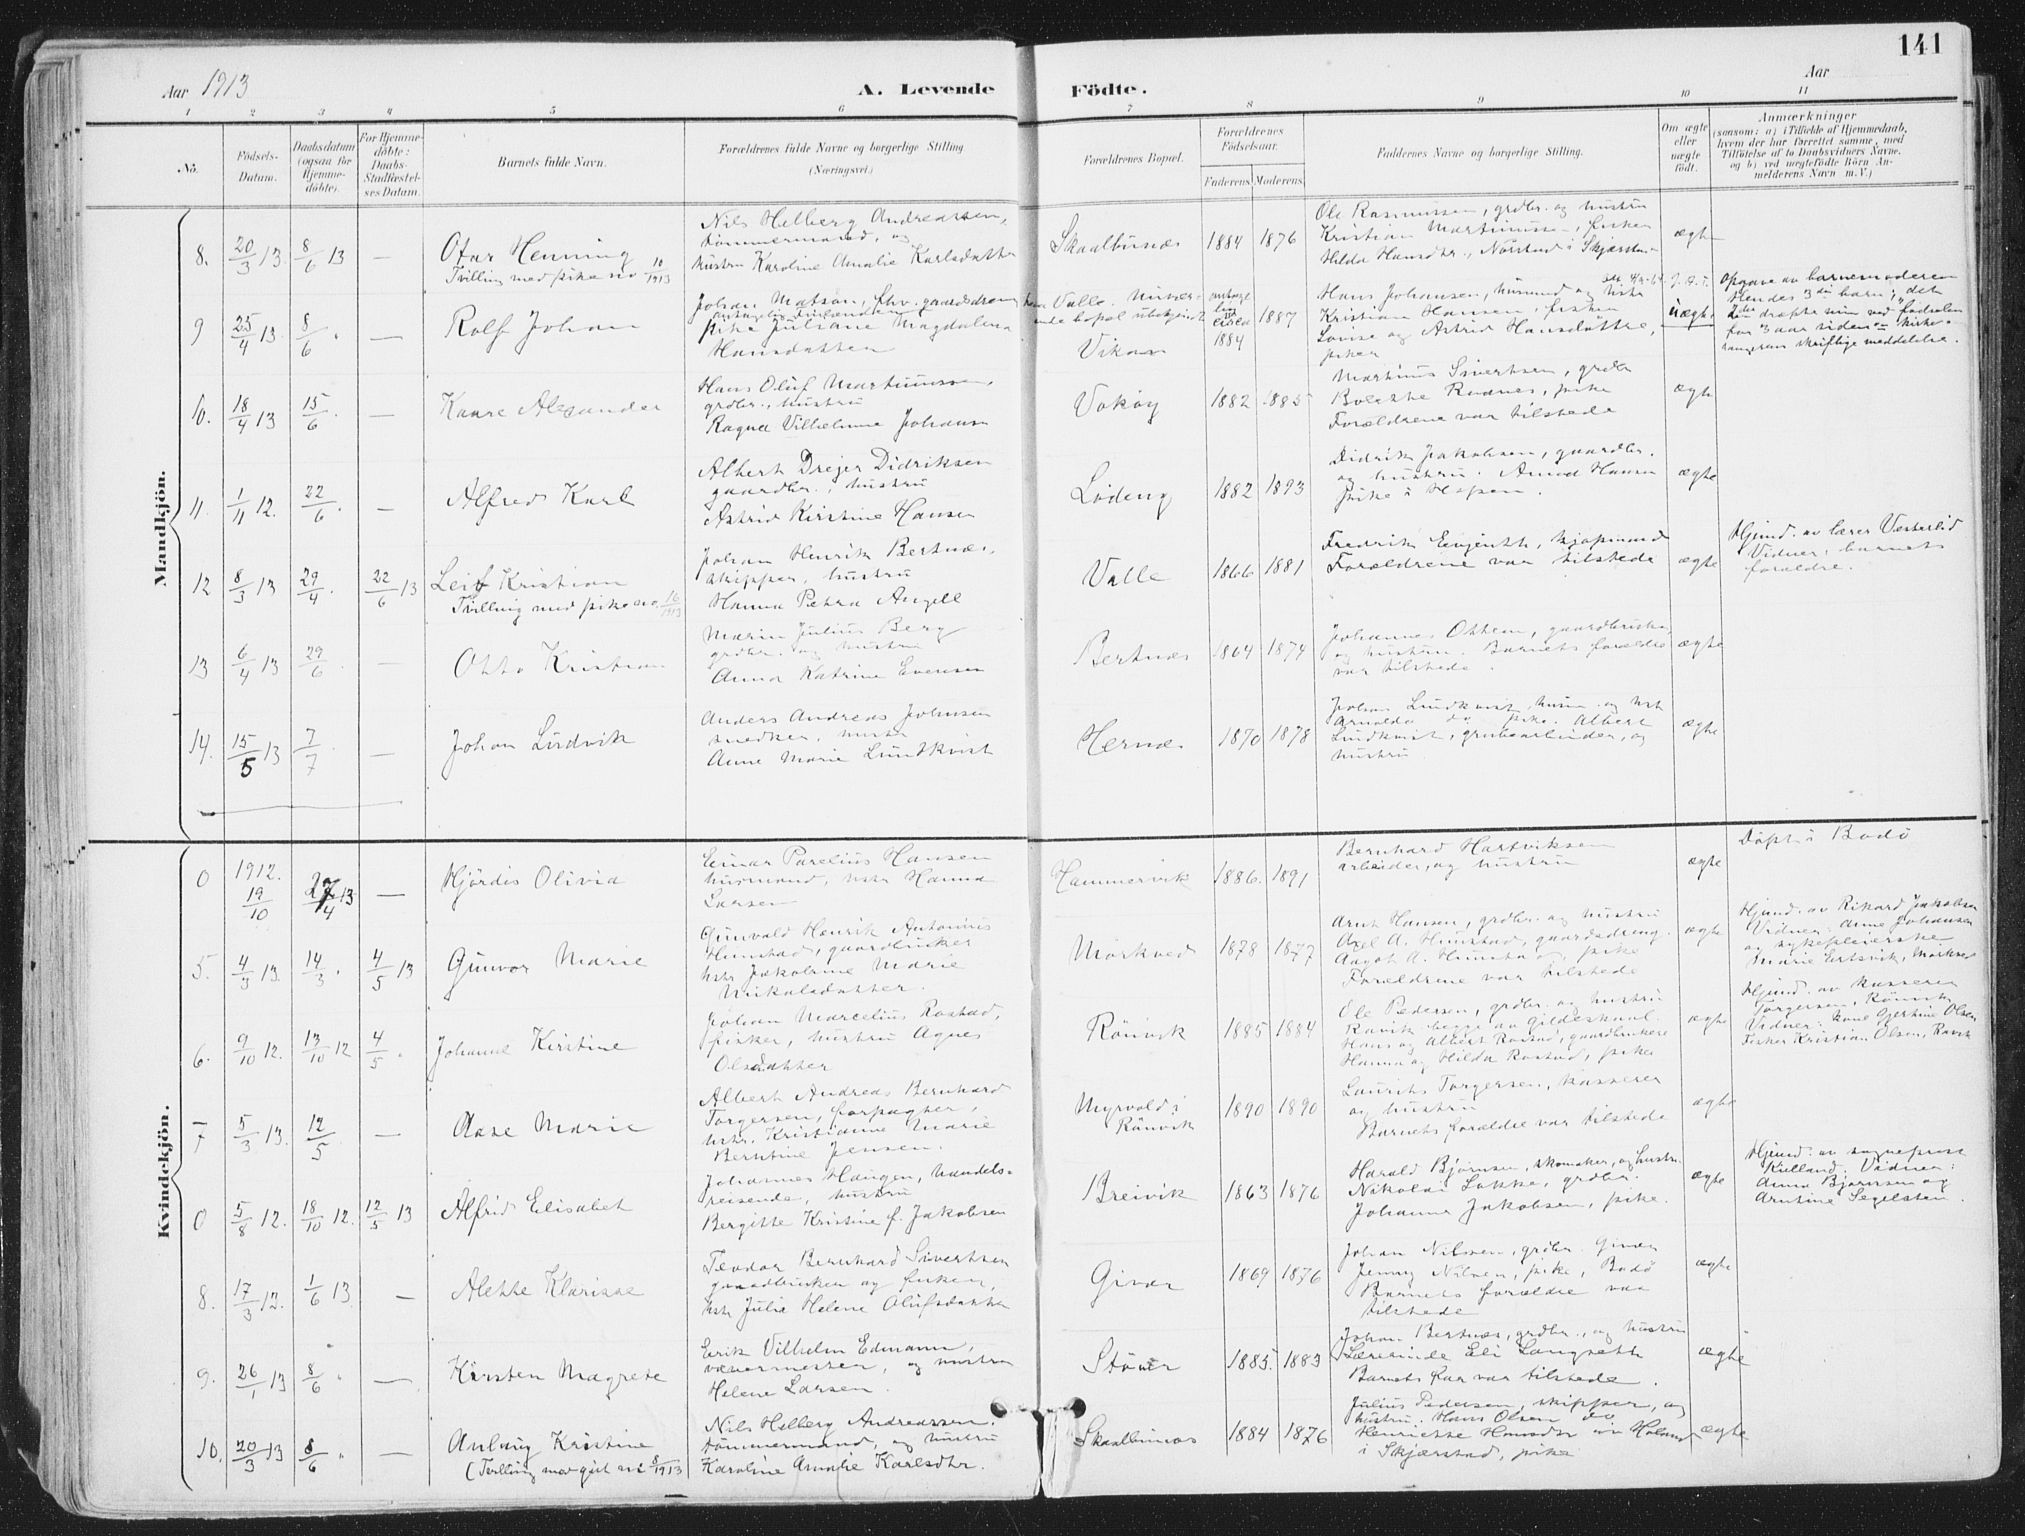 141
Aar 1913
A. Levende Födte.
Aar
1 2 3 4 5 6 7 8 9 10 11
No.
Födsels-Datum.
Daabsdatum (ogsaa for Hjemme-döbte).
For Hjemme-döbte: Daabs-Stadfæstel-ses Datum.
Barnets fulde Navn.
Forældrenes fulde Navne og borgerlige Stilling
(Næringsvei.)
Forældrenes Bopæl.
Forældrenes Födselsaar.
Faderens. Moderens.
Faddernes Navne og borgerlige Stilling.
Om ægte eller uægte födt.
Anmærkninger
(saasom: a) i Tilfælde af Hjemmedaab,
hvem der har forrettet samme, med
Tilföielse af to Daabsvidners Navne.
og b) ved uægtefödte Börn An-
melderens Navn m. V.)
Mandkjön.
8. 20/3 13 8/6 13 — Otar Henning
Tvilling med pike no 10/1913
Nils Helberg Andreassen,
tömmermand, og
hustru Karoline Amalie Karlsdatter
Skaalbunæs 1884 1876
Ole Rasmussen, grdbr. og hustru
Kristian Martinussen, fisker
Hilda Hansdtr., Nörstad i Skjærstad
ægte
9 25/4 13. 8/6 " — Rolf Johan
Johan Matson, fhv. gaardsdreng
antagelig Finlænder
Pike Juliane Magdalena
Hansdatter
Valle. nuvær-
ende bopæl ubekjendt
Vikan
antagelig circa 1884 1887
Hans Johansen, husmand og hustru
Kristian Hansen, fisker
Lovise og Astrid Hansdøttre,
piker
uægte
Opgave av barnemoderen
Hendes 3die barn; det
2det dræpte hun ved fødselen
for 3 aar siden
skriftlige meddelelse.
10. 18/4 13 15/6 " — Kaare Alexander
Hans Oluf Martinussen,
grdbr., hustru
Ragna Vilhelmine Johansen
Vaköy 1882 1885
Martinus Sivertsen, grdbr
Bolette Rødnes, pike
Forældrene var tilstede
ægte
11. 1/11 12. 22/6 " — Alfred Karl
Albert Drejer Didriksen
gaardbr., hustru
Astrid Kirstine Hansen
Löding 1882 1893
Didrik Jakobsen, gaardbr.
og hustru. Anna Hansen
pike i Hopen.
ægte
12 8/3 13 29/4 " 22/6 13 Leif Kristian
Tvilling med pike no 16/1913
Johan Henrik Bertnæs,
skipper, hustru
Hanna Petra Angell
Valle 1866 1881
Fredrik Engseth, kjøpmand
Forældrene var tilstede
ægte
Hjemd. av lærer Vesterlid
Vidner: barnets
forældre.
13 6/4 13 29/6 — Otto Kristian
Marin Julius Berg
grdbr. og hustru
Anna Katrine Evensen
Bertnæs 1864 1874
Johannes Ottem, gaardbruker
og hustru. Barnets forældre
var tilstede.
ægte
14. 15/5 13 7/7 — Johan Ludvik
Anders Andreas Johnsen
snedker, hustru
Anne Marie Lundkvist
Hernæs 1870 1878
Johan Lundkvist, husm. og hst
Arnolda do pike. Albert
Lundkvist, grubearbeider, og
hustru
ægte
Kvindekjön.
0 1912. 19/10 27/4 13 — Hjördis Olivia
Einar Parelius Hansen
husmand, hstr Hanna
Larsen
Hammervik 1886. 1891
Bernhard Hartviksen
arbeider, og hustru
ægte
Döpt i Bodö
5. 4/3 13. 14/3 " 4/5 13 Gunvor Marie
Gunvald Henrik Antonius
Hunstad, gaardbruker
hstr Jakobine Marie
Nikolaidatter.
Mörkved 1878 1877
Arnt Hansen, grdbr. og hustru
Axel A. Hunstad, gaardsdreng.
Aagot A. Hunstad, pike
Forældrene var tilstede
ægte
Hjemd. av Rikard Jakobsen
Vidner: Anne Johansen
og sykepleierske
Marie Ertsvik, Mörkved
6. 9/10 12. 13/10 12 4/5 " Johanne Kirstine
Johan Marcelius Rostad,
fisker, hustru Agnes
Olsdatter
Rönvik 1885 1884
Ole Pedersen, grdbr. og hustru
Ravik begge av Gildeskaal.
Hans og Albert Rostad, gaardbrukere
Hanna og Hilda Rostad, piker
ægte
Hjemd. av kasserer
Torgersen, Rönvik
Vidner: Kone Gjertine Olsen
Fisker Kristian Olsen, Ravik
7 5/3 13. 12/5 — Aase Marie
Albert Andreas Bernhard
Torgersen, forpagter,
hstr. Kristianne Marie
Berntine Jensen.
Myrvold i
Rönvik
1890 1890
Laurits Torgersen, kasserer
og hustru
Barnets forældre var tilstede
ægte
0 5/8 12. 18/10 12. 12/5 13 Alfrid Elisabet
Johannes Haugen, handels-
reisende, hustru
Bergitte Kristine f. Jakobsen
Breivik 1863 1876
Harald Björnsen, skomaker, og hustru
Nikolai Løkke, grdbr.
Johanna Jakobsen, pike.
ægte
Hjemd. av sogneprest
Kulland. Vidner:
Anna Björnsen og
Arntine Segelsten.
8. 17/3 12. 1/6 13. — Alette Klarisse
Teodor Bernhard Sivertsen
gaardbruker og fisker,
hstr Julia Helene Olufsdatter
Givær 1869 1876
Johan Nilssen, grdbr. Givær
Jenny Nilsen, pike, Bodö
Barnets forældre var
tilstede
ægte
9. 26/1 13 8/6 " — Kirsten Magrete
Erik Vilhelm Edmann,
vævermester, og hustru
Helene Larsen.
Stöver 1885. 1883
Johan Bertnæs, grdbr., og hustru
Lærerinde Eli Langseth
Barnets far var tilstede.
ægte
10. 20/3 13 8/6 " — Anbjug Kristine
(Tvilling med gut no 8/1913
Nils Helberg Andreassen.
tömmermand, og hustru
Karoline Amalie Karlsdtr.
Skaalbunæs 1884 1876
Julius Pedersen, skipper, og
hustru. Hans Olsen do
Henriette Hansdtr
i Skjærstad, pike
ægte